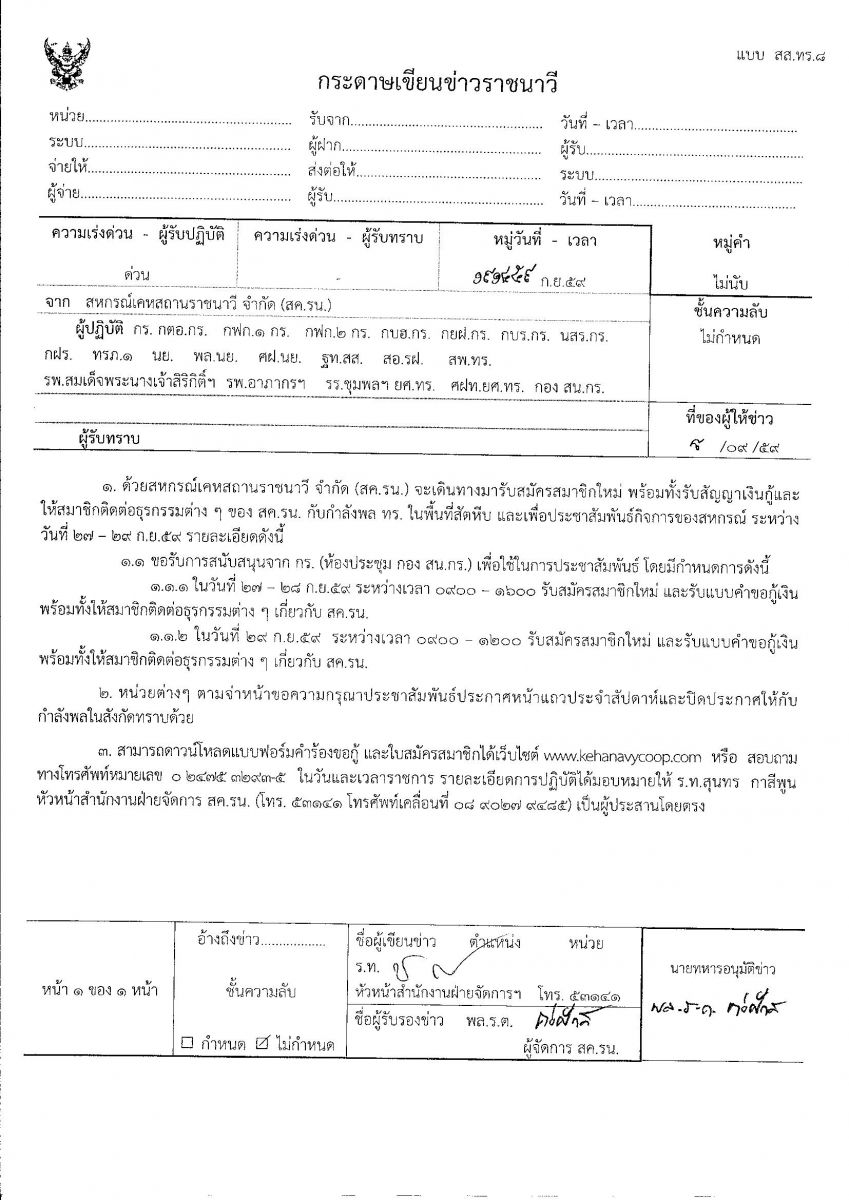 แบบ สส.ทร.๘
กระดาษเขียนข่าวราชนาวี
หน่วย.................... รับจาก.................... วันที่ – เวลา....................
ระบบ.................... ผู้ฝาก.................... ผู้รับ....................
จ่ายให้.................... ส่งต่อให้.................... ระบบ....................
ผู้จ่าย.................... ผู้รับ.................... วันที่ – เวลา....................
ความเร่งด่วน - ผู้รับปฏิบัติ ความเร่งด่วน - ผู้รับทราบ หมู่วันที่ - เวลา หมู่คำ
ด่วน - ก.ย.๕๙ ไม่นับ
จาก สหกรณ์เคหสถานราชนาวี จำกัด (สค.รน.) ชั้นความลับ
ผู้ปฏิบัติ กร. กตอ.กร. กฟก.๑ กร. กฟก.๒ กร. กบฮ.กร. กยฝ.กร. กบร.กร. นสร.กร. ไม่กำหนด
กฝร. ทรภ.๑ นย. พล.นย. ศฝ.นย. ฐท.สส. สอ.รฝ. สพ.ทร.
รพ.สมเด็จพระนางเจ้าสิริกิติ์ฯ รพ.อาภากรฯ รร.ชุมพลฯ ยศ.ทร. ศฝท.ยศ.ทร. กอง สน.กร.
ที่ของผู้ให้ข่าว
ผู้รับทราบ /๐๙ /๕๙
๑. ด้วยสหกรณ์เคหสถานราชนาวี จำกัด (สค.รน.) จะเดินทางมารับสมัครสมาชิกใหม่ พร้อมทั้งรับสัญญาเงินกู้และ
ให้สมาชิกติดต่อธุรกรรมต่าง ๆ ของ สค.รน. กับกำลังพล ทร. ในพื้นที่สัตหีบ และเพื่อประชาสัมพันธ์กิจการของสหกรณ์ ระหว่าง
วันที่ ๒๗ – ๒๙ ก.ย.๕๙ รายละเอียดดังนี้
๑.๑ ขอรับการสนับสนุนจาก กร. (ห้องประชุม กอง สน.กร.) เพื่อใช้ในการประชาสัมพันธ์ โดยมีกำหนดการดังนี้
๑.๑.๑ ในวันที่ ๒๗ – ๒๘ ก.ย.๕๙ ระหว่างเวลา ๐๙๐๐ – ๑๖๐๐ รับสมัครสมาชิกใหม่ และรับแบบคำขอกู้เงิน
พร้อมทั้งให้สมาชิกติดต่อธุรกรรมต่าง ๆ เกี่ยวกับ สค.รน.
๑.๑.๒ ในวันที่ ๒๙ ก.ย.๕๙ ระหว่างเวลา ๐๙๐๐ – ๑๒๐๐ รับสมัครสมาชิกใหม่ และรับแบบคำขอกู้เงิน
พร้อมทั้งให้สมาชิกติดต่อธุรกรรมต่าง ๆ เกี่ยวกับ สค.รน.
๒. หน่วยต่างๆ ตามจ่าหน้าขอความกรุณาประชาสัมพันธ์ประกาศหน้าแถวประจำสัปดาห์และปิดประกาศให้กับ
กำลังพลในสังกัดทราบด้วย
๓. สามารถดาวน์โหลดแบบฟอร์มคำร้องขอกู้ และใบสมัครสมาชิกได้เว็บไซต์ www.kehanavycoop.com หรือ สอบถาม
ทางโทรศัพท์หมายเลข ๐ ๒๔๗๕ ๓๒๙๓-๕ ในวันและเวลาราชการ รายละเอียดการปฏิบัติได้มอบหมายให้ ร.ท.สุนทร กาสีพูน
หัวหน้าสำนักงานฝ่ายจัดการ สค.รน. (โทร. ๕๓๑๔๑ โทรศัพท์เคลื่อนที่ ๐๘ ๙๐๒๗ ๙๔๘๕) เป็นผู้ประสานโดยตรง
อ้างถึงข่าว.................. ชื่อผู้เขียนข่าว ตำแหน่ง หน่วย
ร.ท. นายทหารอนุมัติข่าว
หน้า ๑ ของ ๑ หน้า ชั้นความลับ หัวหน้าสำนักงานฝ่ายจัดการฯ โทร. ๕๓๑๔๑
ชื่อผู้รับรองข่าว พล.ร.ต. พล.ร.ต.
☐ กำหนด ☑ ไม่กำหนด ผู้จัดการ สค.รน.